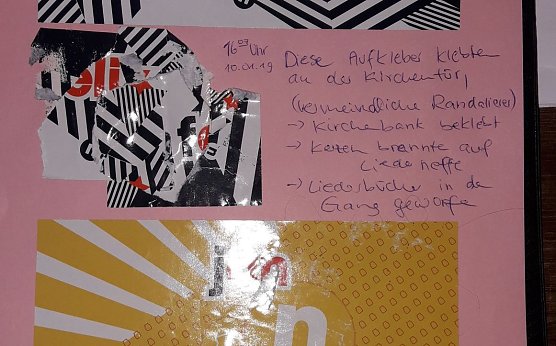 16⁰⁷ Uhr
10.01.19
Diese Aufkleber klebten
an der Kirchentür,
(vermeindliche Randalierer)
→ Kirchebank beklebt
→ Kerzen brannte auf
Liederheffte
→ Liederbücher in de
Gang geworfe